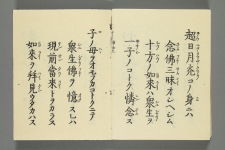 超日月光コノ身ニハ
念佛三昧オシヘシム
十方ノ如來ハ衆生ヲ
一子ノコトク憐念ス
子ノ母ヲオモフカコトクニテ
衆生佛ヲ憶スレハ
現前當來トホカラス
如來ヲ拜見ウタカハス